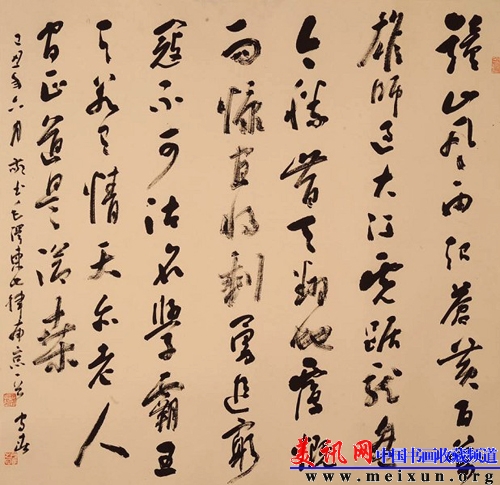 鐘山風雨起蒼黃百萬
雄師過大江虎踞龍盤
今勝昔天翻地覆慨
而慷宜將剩勇追窮
寇不可沽名學霸王
天若有情天亦老人
間正道是滄桑
己丑年六月敬书毛澤東七律南京一首
美讯网 中国书画收藏频道
www.meixun.org